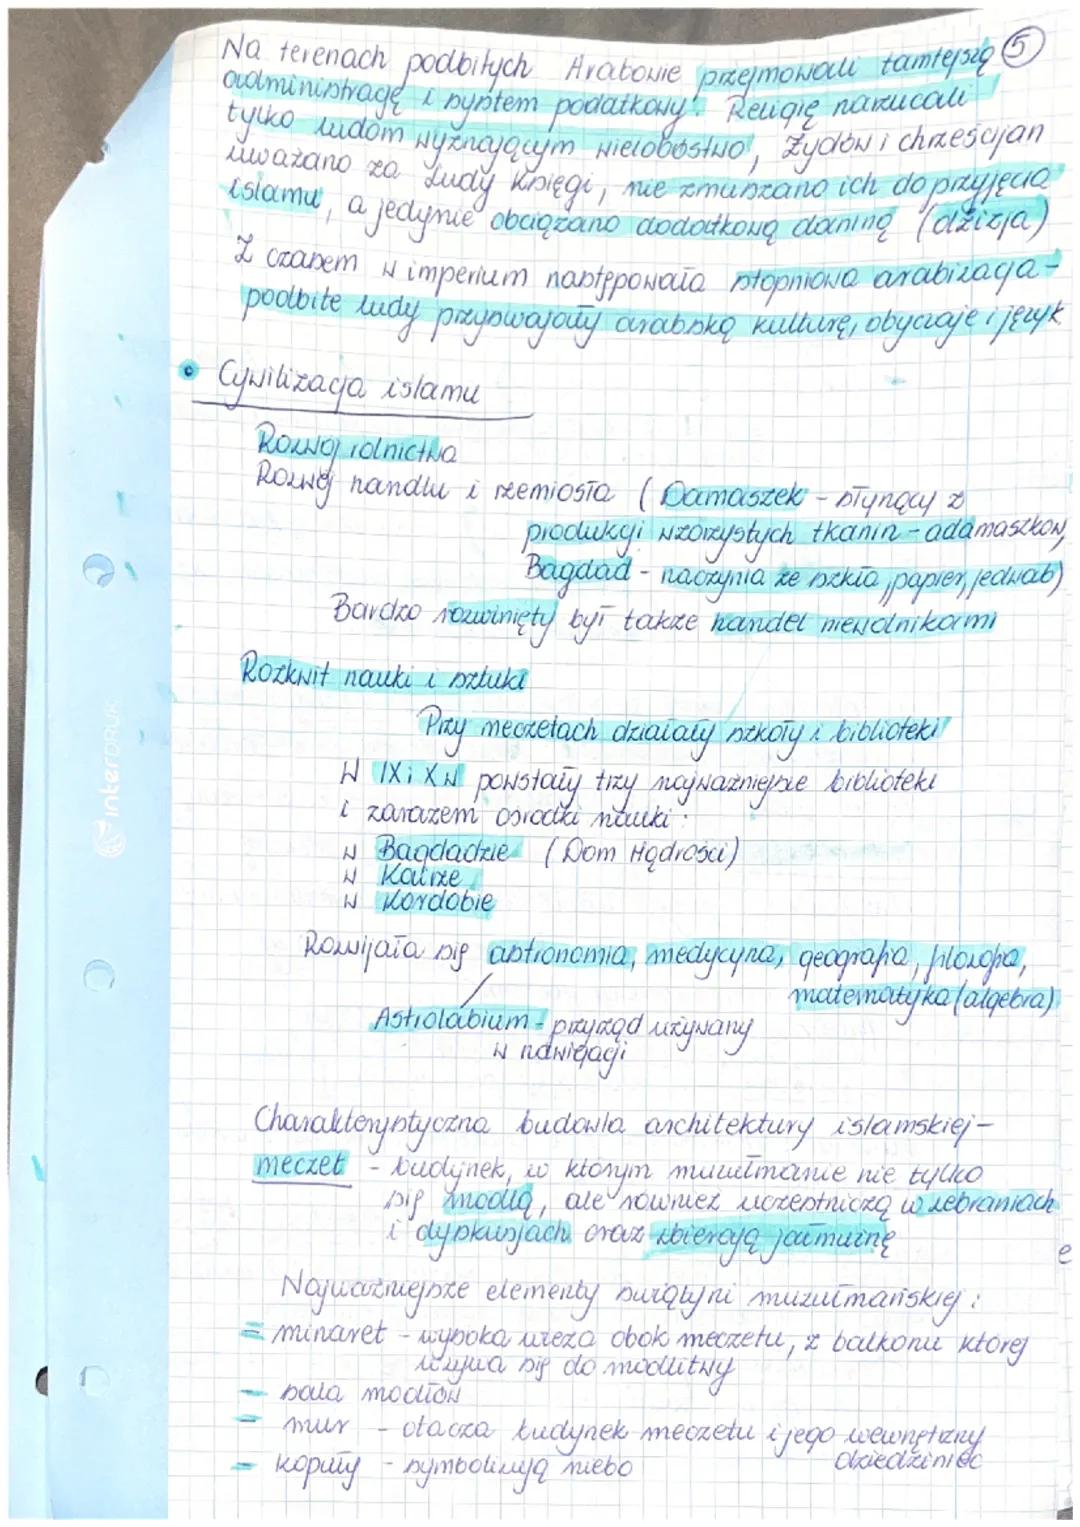 Na terenach podbitych Arabowie przejmowali tamtejszą 5
administrację i system podatkowy. Religię narzucali
tylko ludom wyznającym wielobóstwo, Żydów i chrześcijan
uważano za Ludy Księgi, nie zmuszano ich do przyjęcia
islamu, a jedynie obciążano dodatkową daniną (dżizja)
Z czasem w imperium następowała stopniowa arabizacja -
podbite ludy przyswajały arabską kulturę, obyczaje i język
Cywilizacja islamu
Rozwój rolnictwa
Rozwój handlu i rzemiosła (Damaszek - słynący z
produkcji wzorzystych tkanin - adamaszków,
Bagdad - naczynia ze szkła, papier, jedwab)
Bardzo rozwinięty był także handel niewolnikami
Rozkwit nauki i sztuki
Przy meczetach działały szkoły i biblioteki
W IX i X w powstały trzy najważniejsze biblioteki
i zarazem ośrodki nauki:
w Bagdadzie (Dom Mądrości)
w Kairze
w Kordobie
Rozwijała się astronomia, medycyna, geografia, filozofia,
matematyka (algebra)
Astrolabium - przyrząd używany
w nawigacji
Charakterystyczna budowla architektury islamskiej -
meczet - budynek, w którym muzułmanie nie tylko
się modlą, ale również uczestniczą w zebraniach
i dyskusjach oraz zbierają jałmużnę
e
Najważniejsze elementy świątyni muzułmańskiej:
= minaret - wysoka wieża obok meczetu, z balkonu której
wzywa się do modlitwy
- sala modłów
= mur - otacza budynek meczetu i jego wewnętrzny
dziedziniec
- kopuły - symbolizują niebo
interDRUK